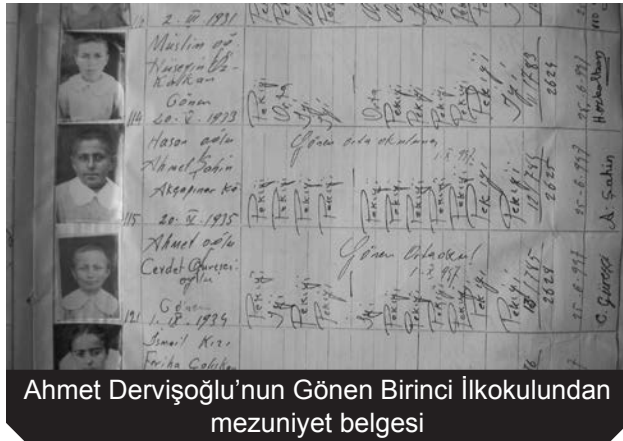 2. III. 1931
Müslim oğ.
Hüseyin Öz-
Kalkan
Gönen
114 20. V. 1933
Pekiyi Orta İyi İyi Orta Pekiyi Pekiyi Pekiyi Pekiyi İyi
2624
25-6-947
Hasan oğlu
Ahmet Şahin
Akçapınar Kö
115 20. V. 1935
Gönen orta okuluna
Pekiyi Pekiyi Pekiyi Pekiyi Pekiyi Pekiyi Pekiyi Pekiyi Pekiyi Pekiyi
25-6-947
A. Şahin
Ahmet oğlu
Cevdet Güreşçi
oğlu
Gönen
121 1. IX. 1934
Gönen Ortaokul
Pekiyi İyi Pekiyi Pekiyi İyi Pekiyi Pekiyi Pekiyi Pekiyi Pekiyi
2624
25-6-947
C. Güreşçi
İsmail Kızı
Feriha Çalışkan
Ahmet Dervişoğlu’nun Gönen Birinci İlkokulundan
mezuniyet belgesi